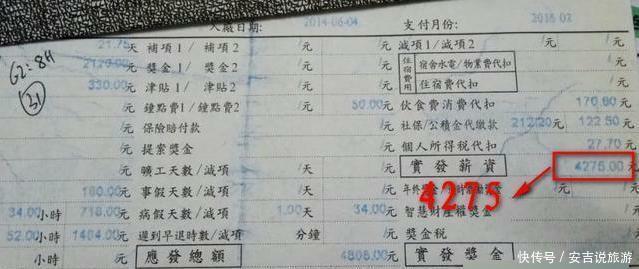 入廠日期: 2014-06-04 支付月份: 2016-02
21.75 天 補項1/ 補項2 /元 減項1/減項2 /元
G2:8H 2120.00 元 獎金1/ 獎金2 /元 住宿費用 宿舍水電/物業費代扣 /元
31 330.00 元 津貼1/ 津貼2 /元 住宿費代扣 /元
/元 鐘點費1/鐘點費2 50.00 元 伙食費消費代扣 170.80 元
/元 保險賠付款 /元 社保/公積金代繳款 212|120 元 122.50 元
/元 提案獎金 /元 個人所得稅代扣 27.70 元
/元 曠工天數/減項 /天 /元 實發薪資 4275.00 元
160.00 元 事假天數/減項 /天 /元 4275
34.00 小時 718.00 元 病假天數/減項 1.00 天 34.00 元 智慧財產權獎金 /元
52.00 小時 1464.00 元 遲到早退時數/減項 分鐘 /元 獎金稅 /元
應發總額 4808.00 元 實發獎金 元
快传号 / 安吉说旅游